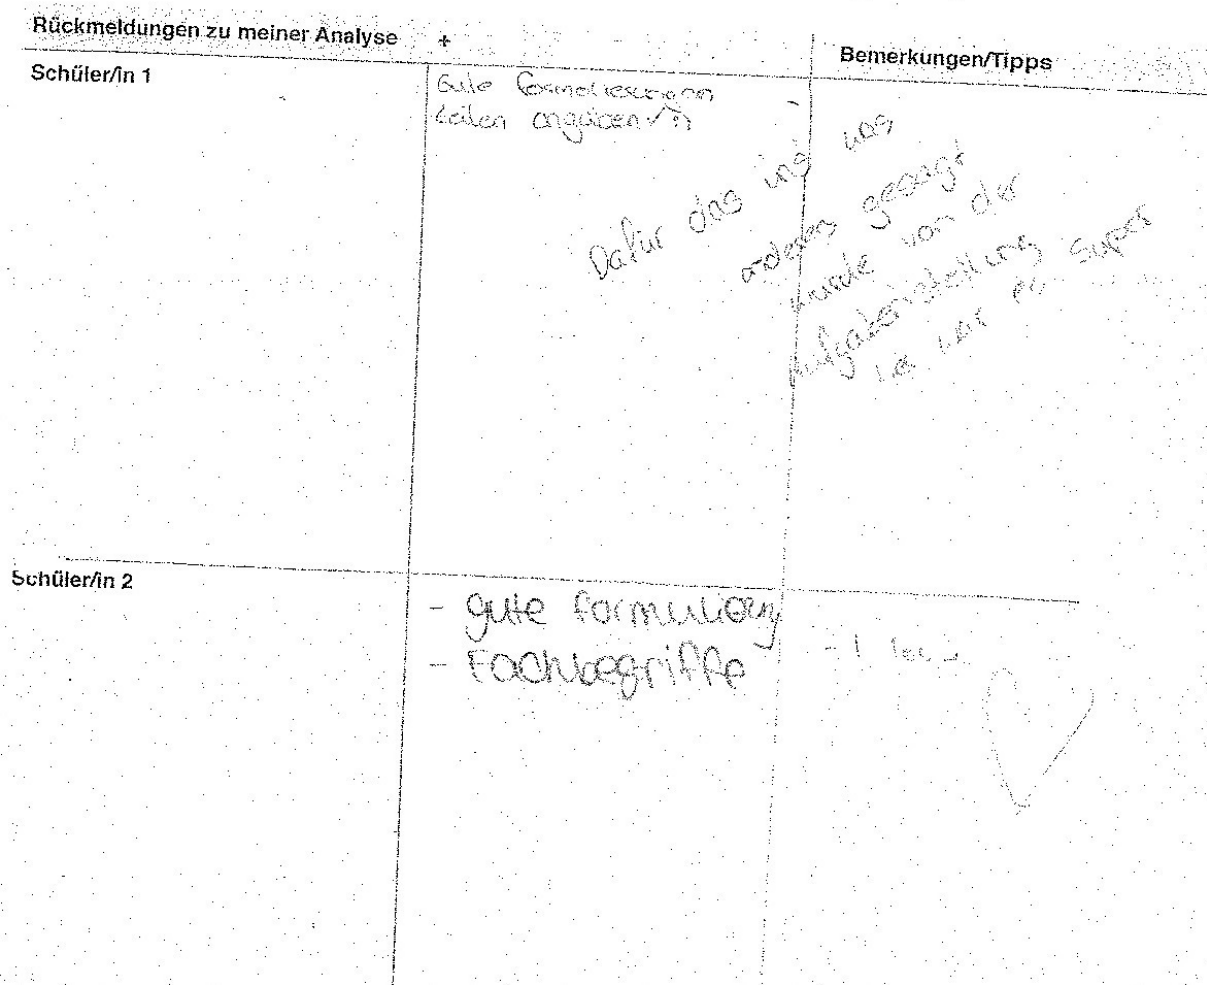 Rückmeldungen zu meiner Analyse + Bemerkungen/Tipps
Schüler/in 1
Gute
zeilen angaben ✓
Dafür das uns was
anderes gesagt
wurde von der
Aufgabenstellung
super
Schüler/in 2
- gute
- Fachbegriffe